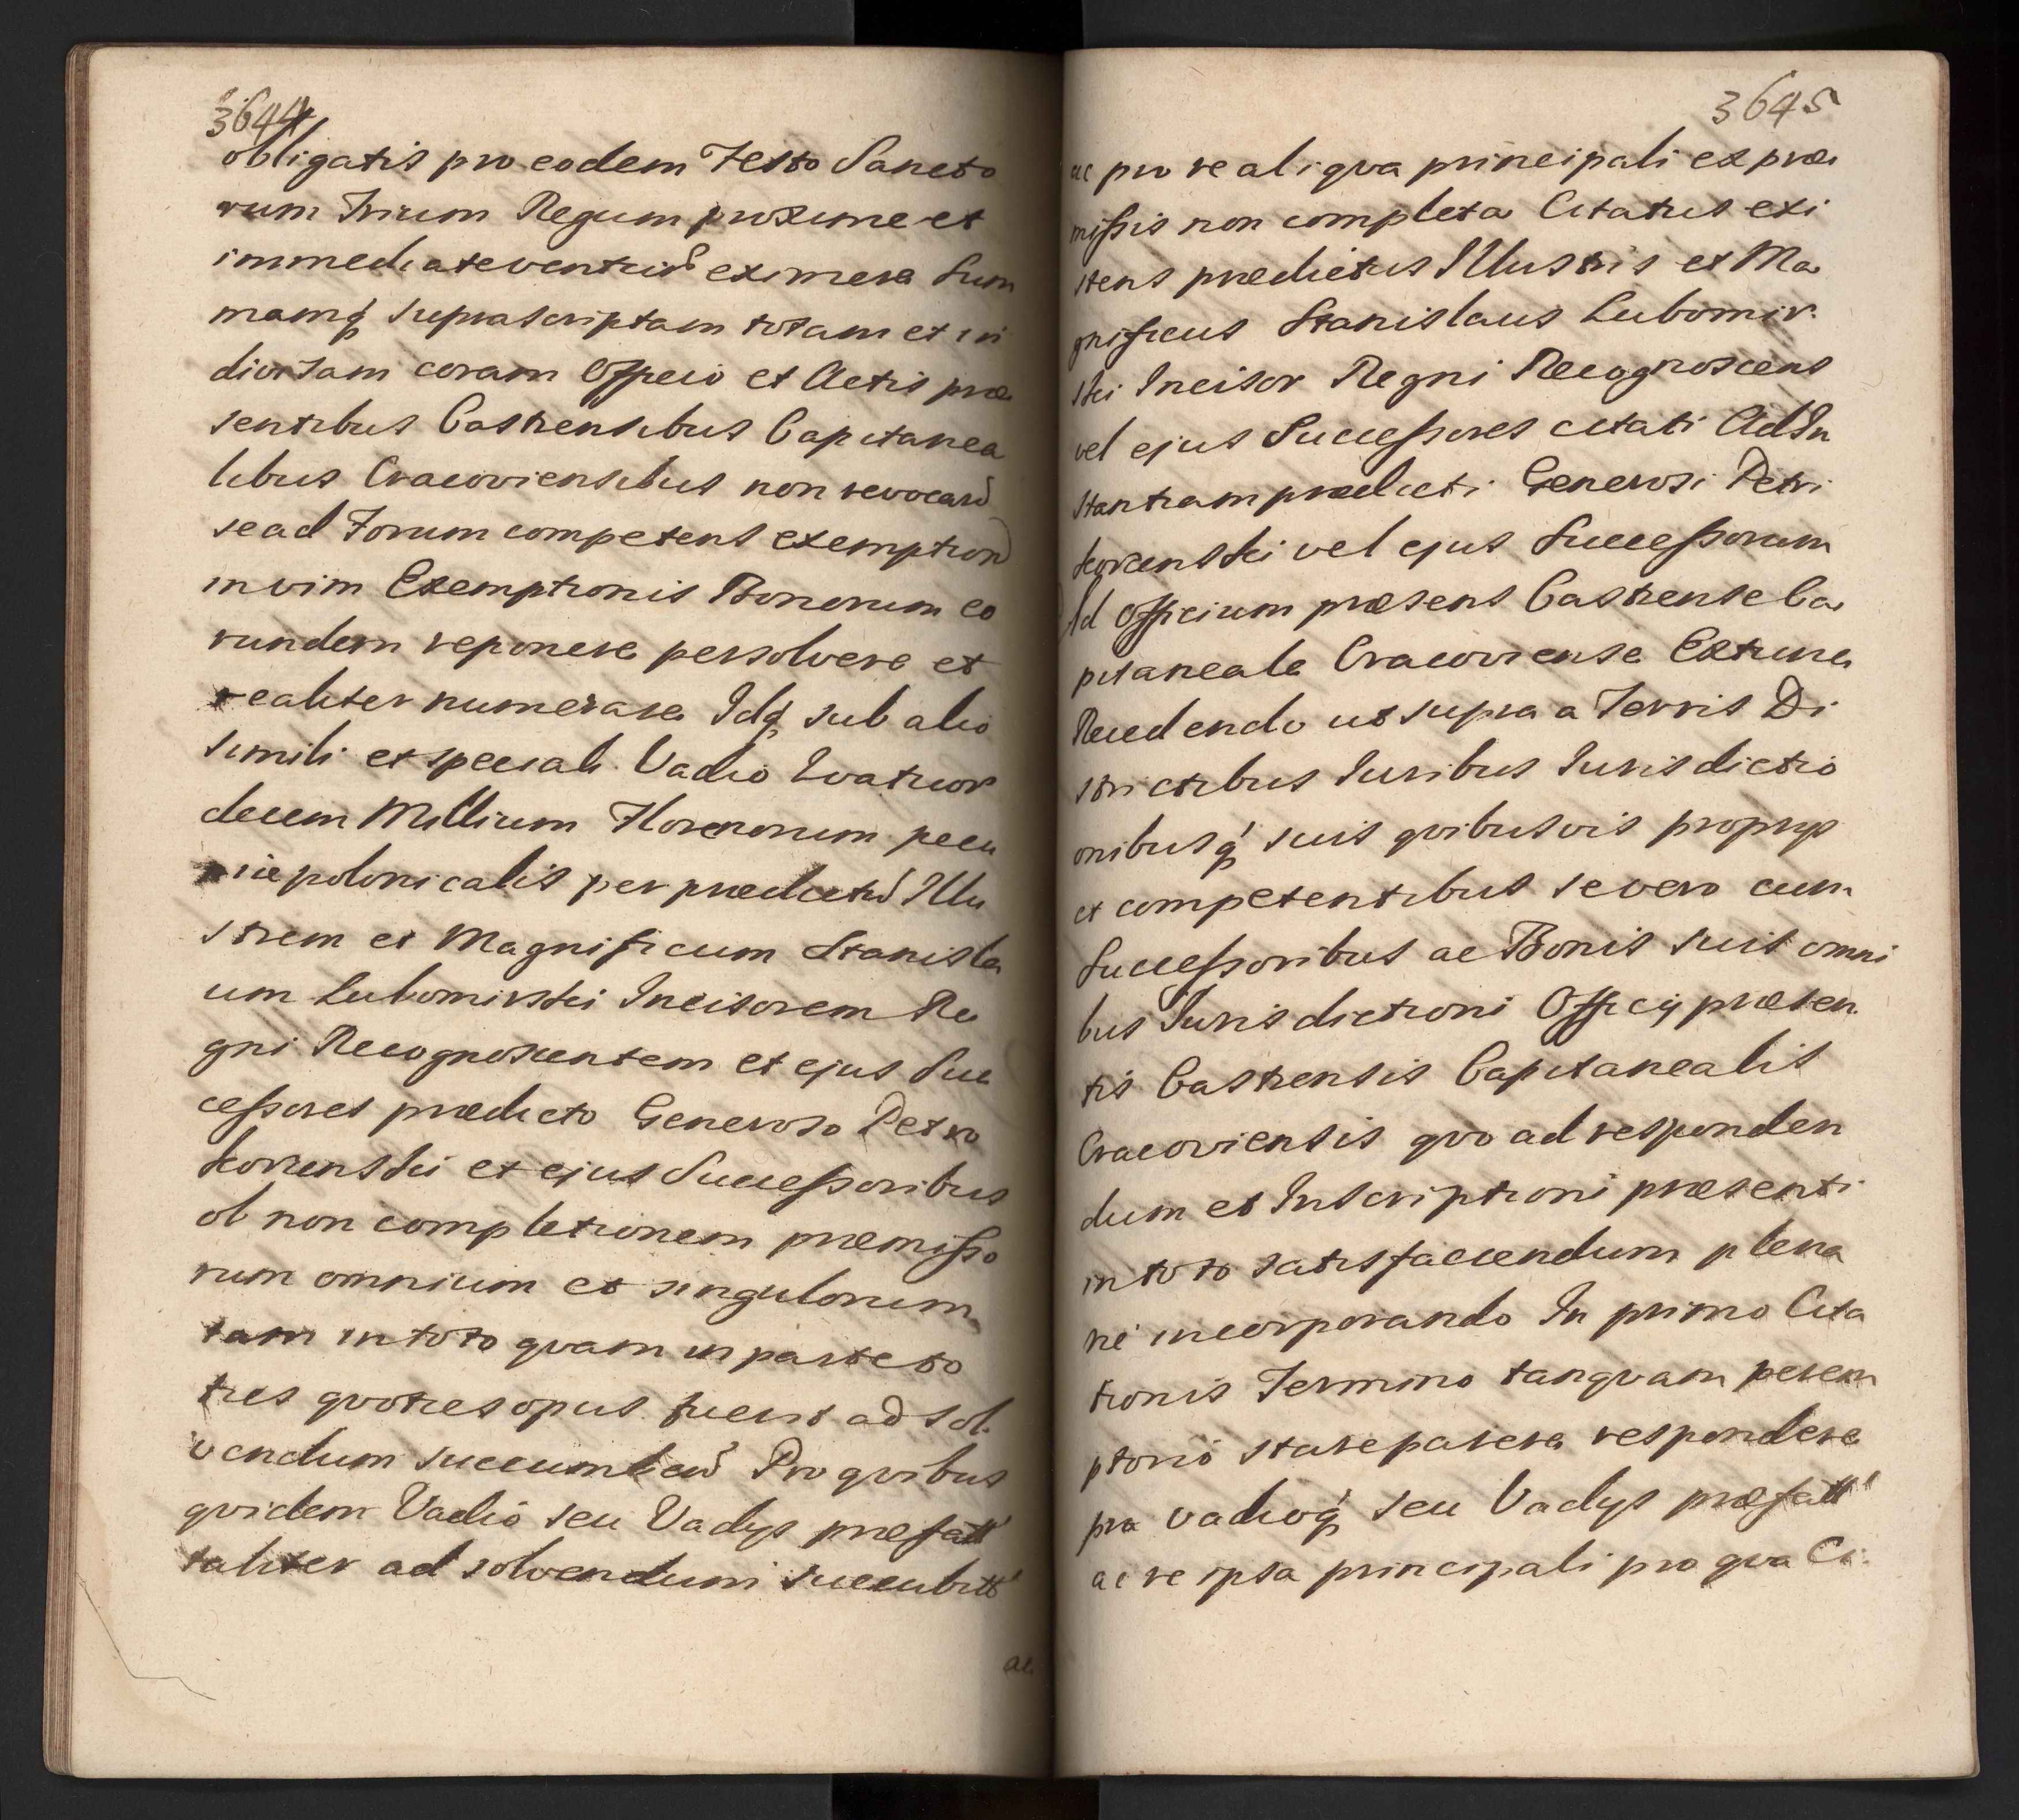 3644
obligatis pro eodem Festo Sancto
rum Trium Regum proxime et
immediate venturo eximere Sum
mamq́ suprascriptam totam et in
divisam coram Offcio et Actis præ
sentibus Castrensibus Capitanea
libus Cracoviensibus non revocand
se ad Forum competens exemption
in vim Exemptionis Bonorum eo
rundem reponere persolvere et
realiter numerare Idq́ sub alio
simili et speciali Vadio Quatuor
decem Millium Florenorum pecu
niæ polonicalis per prædictu Illu
strem et Magnificum Stanisla
um Lubomirski Incisorem Re
gni Recognoscentem et ejus Suc
cessores prædicto Generoso Petro
koryenski et ejus Successoribus
ob non completionem præmisso
rum omnium et singulorum
tam in toto quam in parte to
ties quoties opus fuerit ad sol
vendum succumbend Pro quibus
quidem Vadio seu Vadys præfatt
taliter ad solvendum succubitt
ac
3645
ac pro re aliqva principali ex præ
missis non completa Citatus exi
stens prædictus Illustris et Ma
gnificus Stanislaus Lubomir
ski Incisor Regni Recognoscens
vel ejus Successores citati Ad In
stantiam prædicti Generosi Petri
koryenski vel ejus Successorum
Ad Officium præsens Castrense Ca
pitaneale Cracoviense Extunc
Recedendo ut supra a Terris Di
strictibus Iuribus Iurisdictio
onibusq́ suis qvibusvis proprys
et competentibus se vero cum
Successoribus ac Bonis suis omni
bus Iurisdictioni Officy præsen
tis Castrensis Capitanealis
Cracoviensis qvo ad responden
dum et Inscriptioni præsenti
in toto satisfaciendum plena
rie incorporando In primo Cita
tionis Termino tanqvam perem
ptorio stare parere respondere
pro vadioq́ seu Vadys præfatt
ac re ipsa principali pro qva Ci